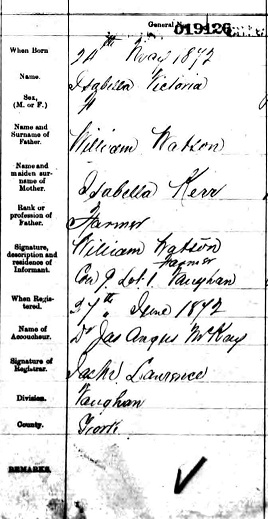 General No. 019126
When Born 24th 1872
Name. Isabella Victoria
Sex, (M. or F.) F
Name and Surname of Father. William Watson
Name and maiden surname of Mother. Isabella Kerr
Rank or profession of Father. Farmer
Signature, description and residence of Informant. William Watson
Farmer
Con 9 Lot 1. Vaughan
When Registered. 27th June 1872
Name of Accoucheur. Dr Jas Angus McKay
Signature of Registrar. Lawrence
Division. Vaughan
County. York
REMARKS.